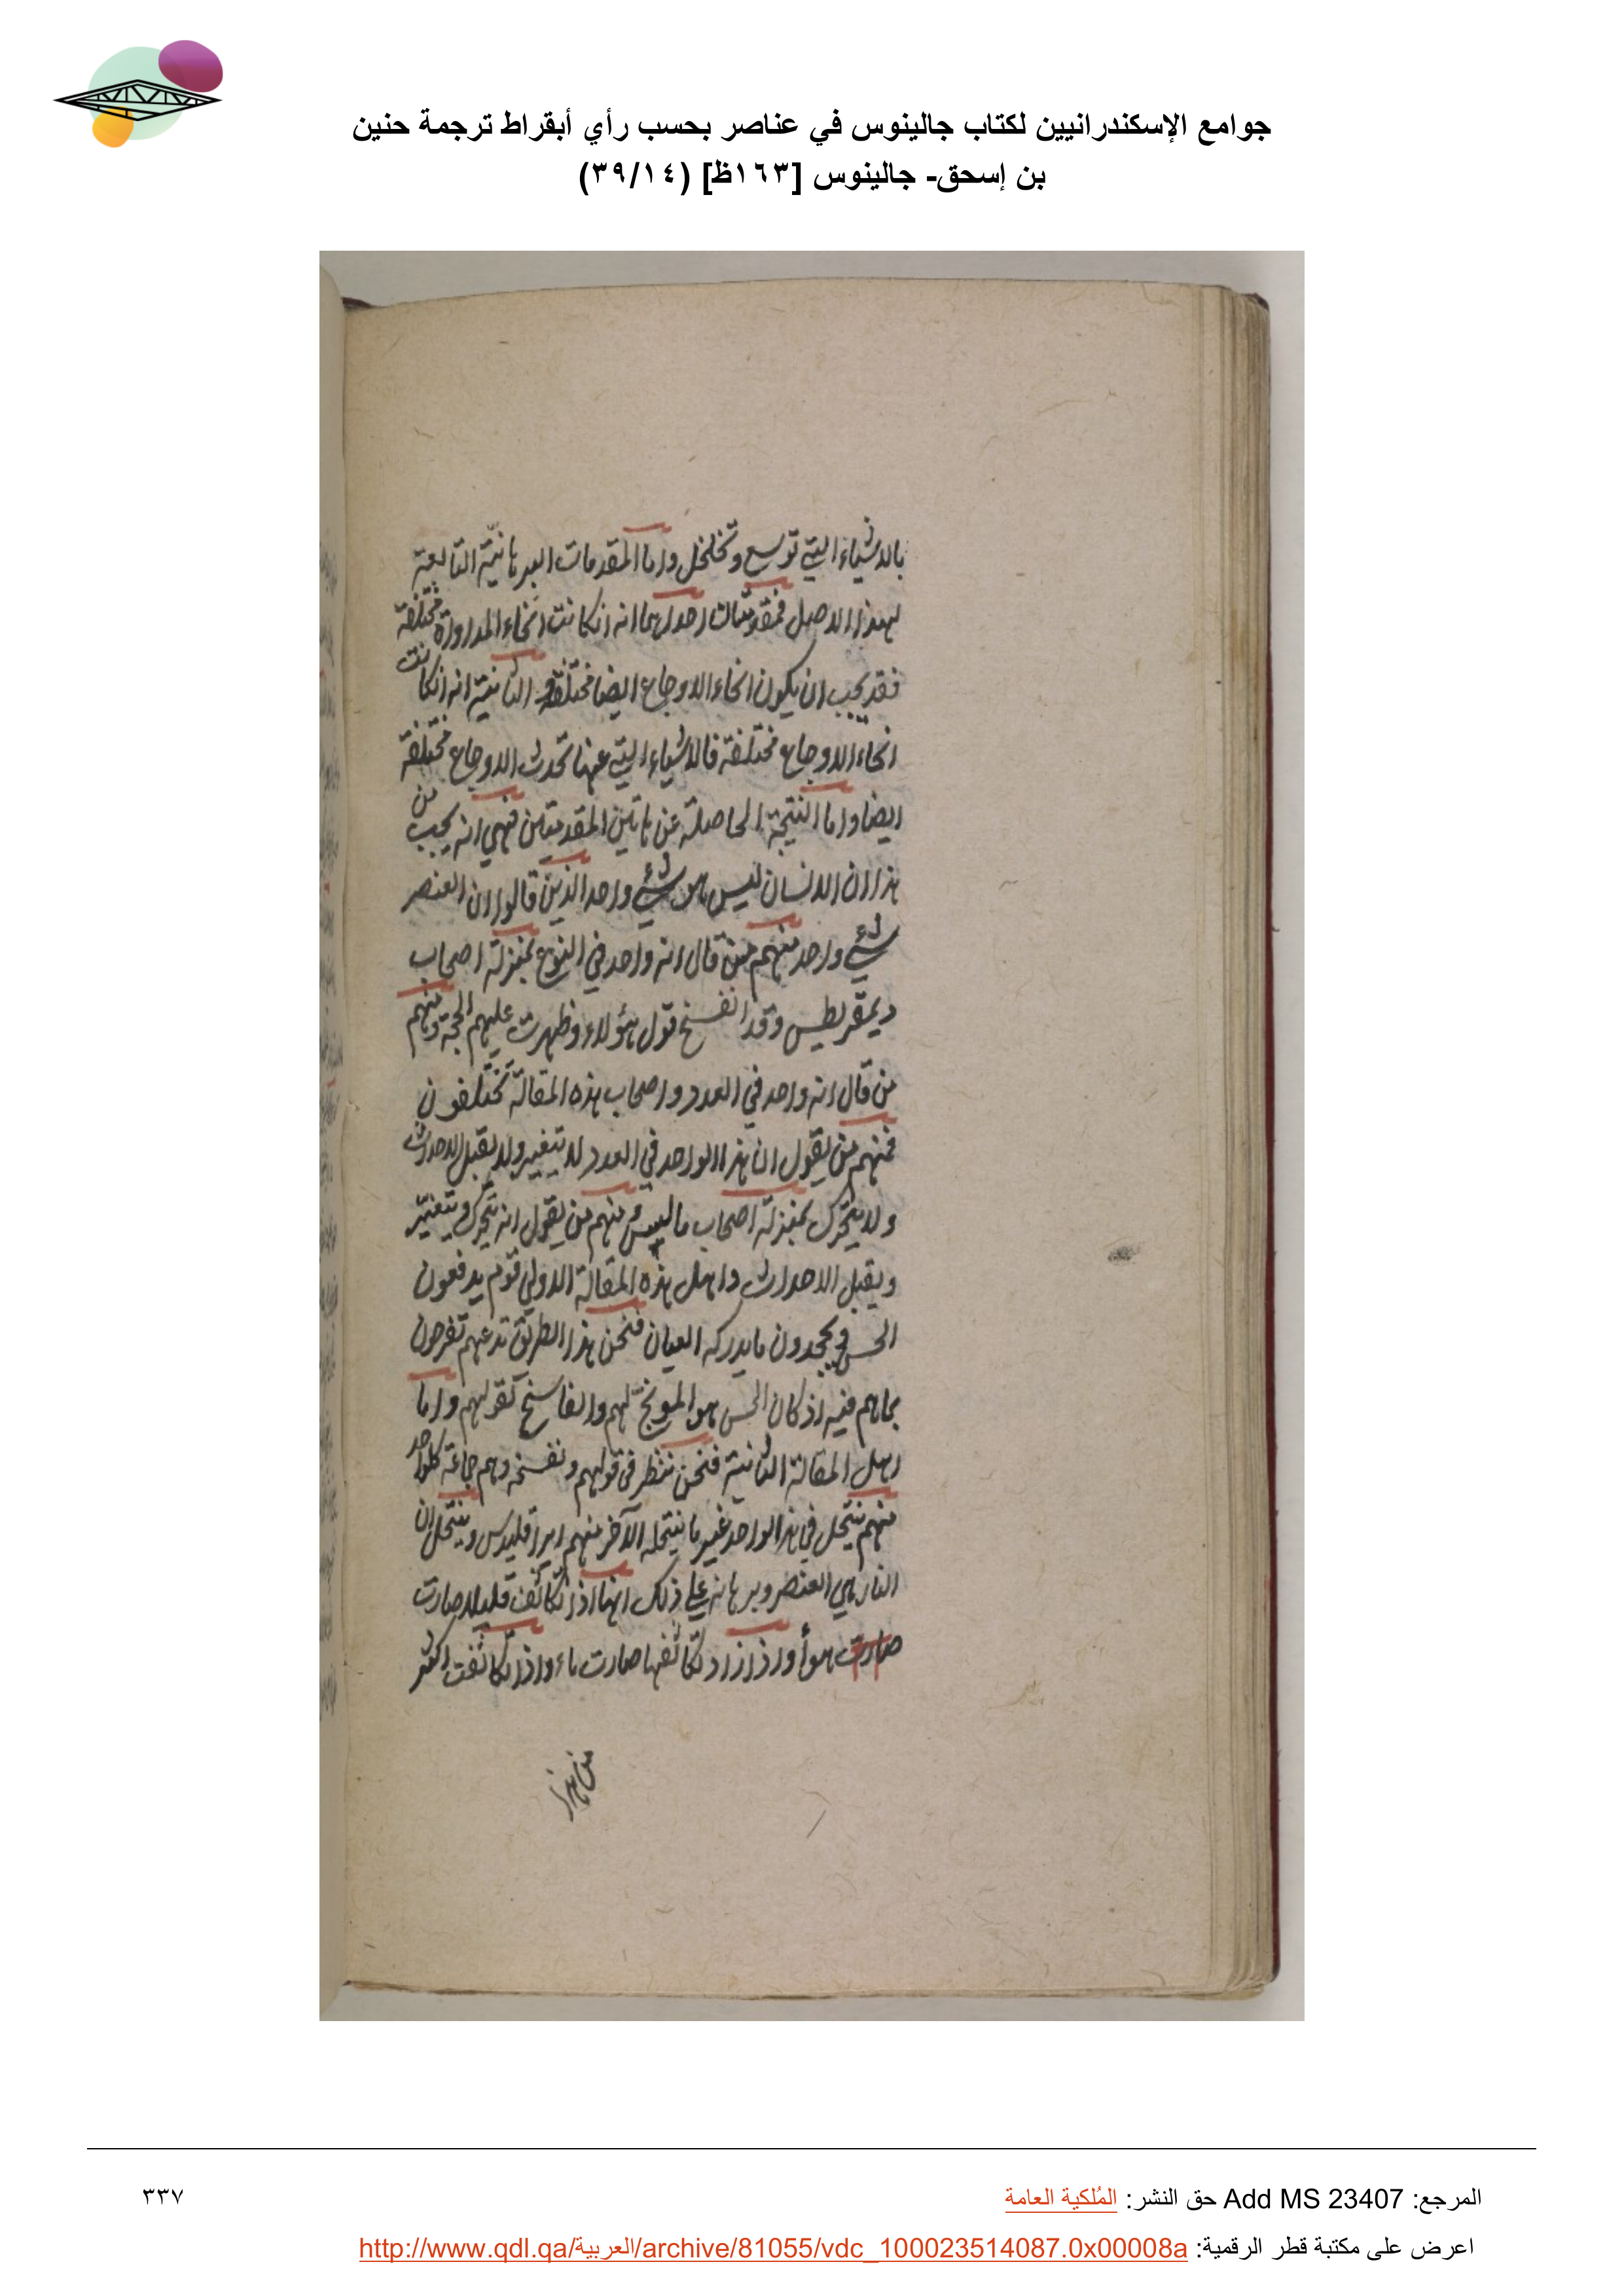 جوامع الإسكندرانيين لكتاب جالينوس في عناصر بحسب رأي أبقراط ترجمة حنين
بن إسحق- جالينوس [١٦٣ظ] (٣٩/١٤)
بالاشياء التي توسع وتخلخل واما المقدمات البرهانية التابعة
لهذا الاصل فمقدمتان احداهما انه ان كانت انحاء المداواة مختلفة
فقد يجب ان يكون انحاء الاوجاع ايضا مختلفة والثانية انه ان كانت
انحاء الاوجاع مختلفة فالاشياء التي عنها تحدث الاوجاع مختلفة
ايضا واما النتيجة الحاصلة عن هاتين المقدمتين فهي انه يجب من
هذا ان الانسان ليس هو شيء واحد الذين قالوا ان العنصر
شيء واحد منهم من قال انه واحد في النوع بمنزلة اصحاب
ديمقريطس وقد انفسخ قول هؤلاء وظهرت عليهم الحجة ومنهم
من قال انه واحد في العدد واصحاب هذه المقالة تختلفون
فمنهم من يقول ان هذا الواحد في العدد لا يتغير ولا يقبل الاحداث
ولا يتحرك بمنزلة اصحاب ماليسس ومنهم من يقول انه يتحرك ويتغير
ويقبل الاحداث واهل هذه المقالة الاولى قوم يدفعون
الحس ويجحدون ما يدركه العيان فنحن هذا الطريق ندعهم تفرحون
بما هم فيه اذ كان الحس هو الموبخ لهم والفاسخ لقولهم واما
اهل المقالة الثانية فنحن ننظر في قولهم ونفسخه وهم جماعة كل واحد
منهم ينتحل في هذا الواحد غير ما ينتحله الآخر منهم ايراقليدس وينتحل ان
النار هي العنصر وبرهانه على ذلك انها اذا تكاثفت قليلا صارت
صارت هوأ واذا زاد تكاثفها صارت ماء واذا تكاثفت اكثر
من هذا
المرجع: Add MS 23407 حق النشر: المُلكية العامة
٣٣٧
اعرض على مكتبة قطر الرقمية: http://www.qdl.qa/العربية/archive/81055/vdc_100023514087.0x00008a